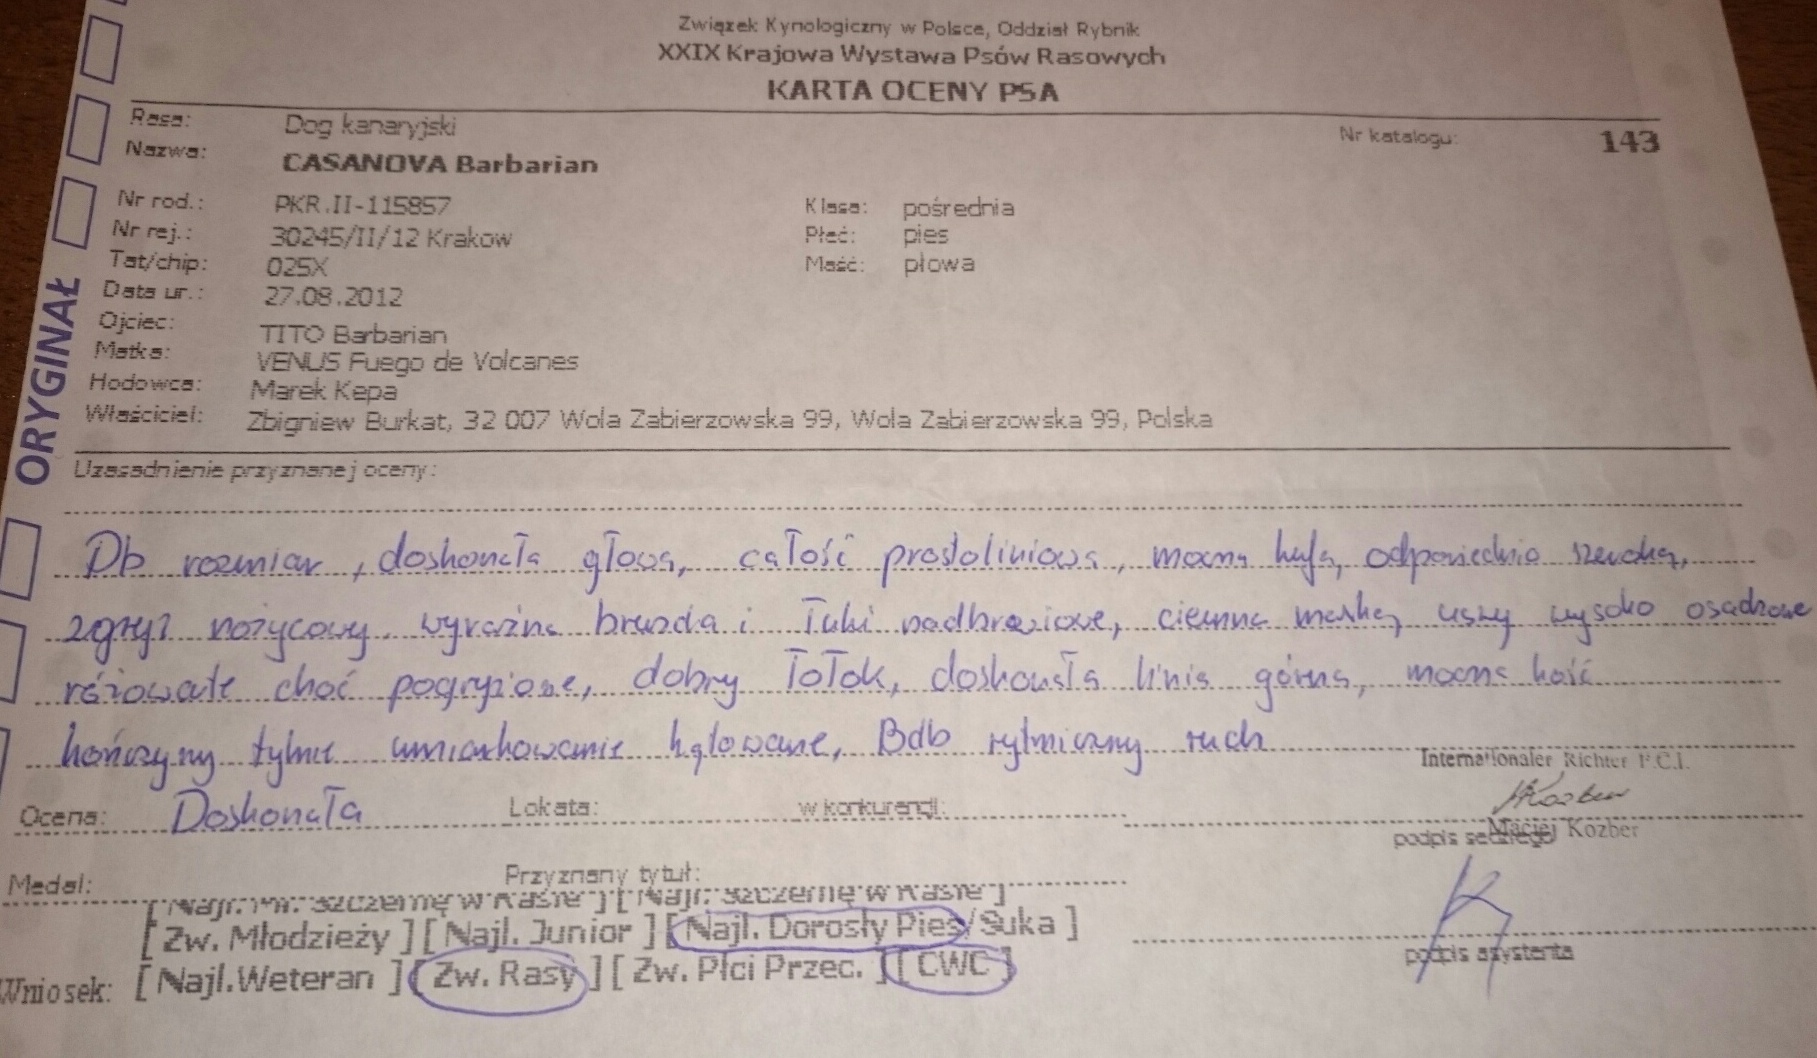 Związek Kynologiczny w Polsce, Oddział Rybnik
XXIX Krajowa Wystawa Psów Rasowych
KARTA OCENY PSA
Rasa: Dog kanaryjski Nr katalogu: 143
Nazwa: CASANOVA Barbarian
Nr rod.: PKR.II-115857 Klasa: pośrednia
Nr rej.: 30245/II/12 Krakow Płeć: pies
Tat/chip: 025X Maść: płowa
Data ur.: 27.08.2012
Ojciec: TITO Barbarian
Matka: VENUS Fuego de Volcanes
Hodowca: Marek Kepa
Właściciel: Zbigniew Burkat, 32 007 Wola Zabierzowska 99, Wola Zabierzowska 99, Polska
ORYGINAŁ
Uzasadnienie przyznanej oceny:
Db rozmiar, doskonała głowa, całość prostoliniowa, mocna kufa, odpowiednio szeroka,
zgryz nożycowy, wyraźna bruzda i łuki nadbrwiowe, ciemna maska, uszy wysoko osadzone
różowate choć pogryzione, dobry tołok, doskonała linia górna, mocna kość
kończyny tylne umiarkowanie kątowane, Bdb rytmiczny ruch
Internationaler Richter F.C.I.
Ocena: Doskonała Lokata: w konkurencji:
Maciej Kozber
podpis sędziego
Medal: Przyznany tytuł:
[Najl. Mł. Szczenię w Rasie] [Najl. Szczenię w Rasie]
[Zw. Młodzieży] [Najl. Junior] [Najl. Dorosły Pies/Suka]
podpis asystenta
Wniosek: [Najl.Weteran] [Zw. Rasy] [Zw. Płci Przec.] [CWC]